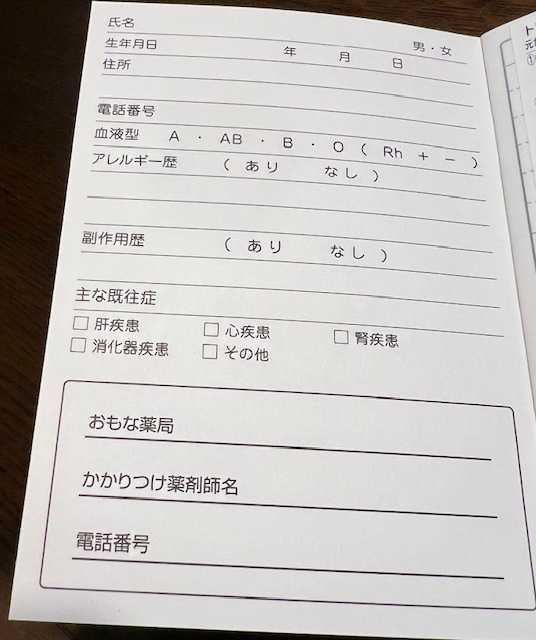 氏名 男・女
生年月日 年 月 日
住所
電話番号
血液型 A ・ AB ・ B ・ O ( Rh + − )
アレルギー歴 ( あり なし )
副作用歴 ( あり なし )
主な既往症
□ 肝疾患 □ 心疾患 □ 腎疾患
□ 消化器疾患 □ その他
おもな薬局
かかりつけ薬剤師名
電話番号